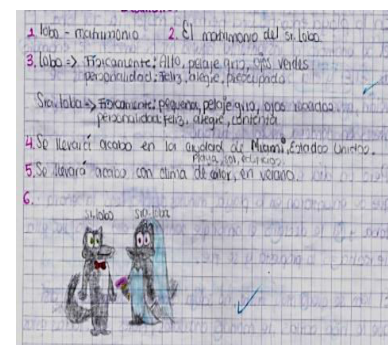 1. lobo - matrimonio 2. El matrimonio del sr. lobo
3. Lobo => Físicamente: Alto, pelaje gris, ojos verdes
personalidad: Feliz, alegre, preocupado
Sra. loba => Físicamente: pequeña, pelaje gris, ojos rosados
personalidad: feliz, alegre, contenta
4. Se llevará acabo en la ciudad de Miami, Estados Unidos.
Playa, sol, edificios.
5. Se llevará acabo con clima de calor, en verano.
6.
sr. lobo sra. loba